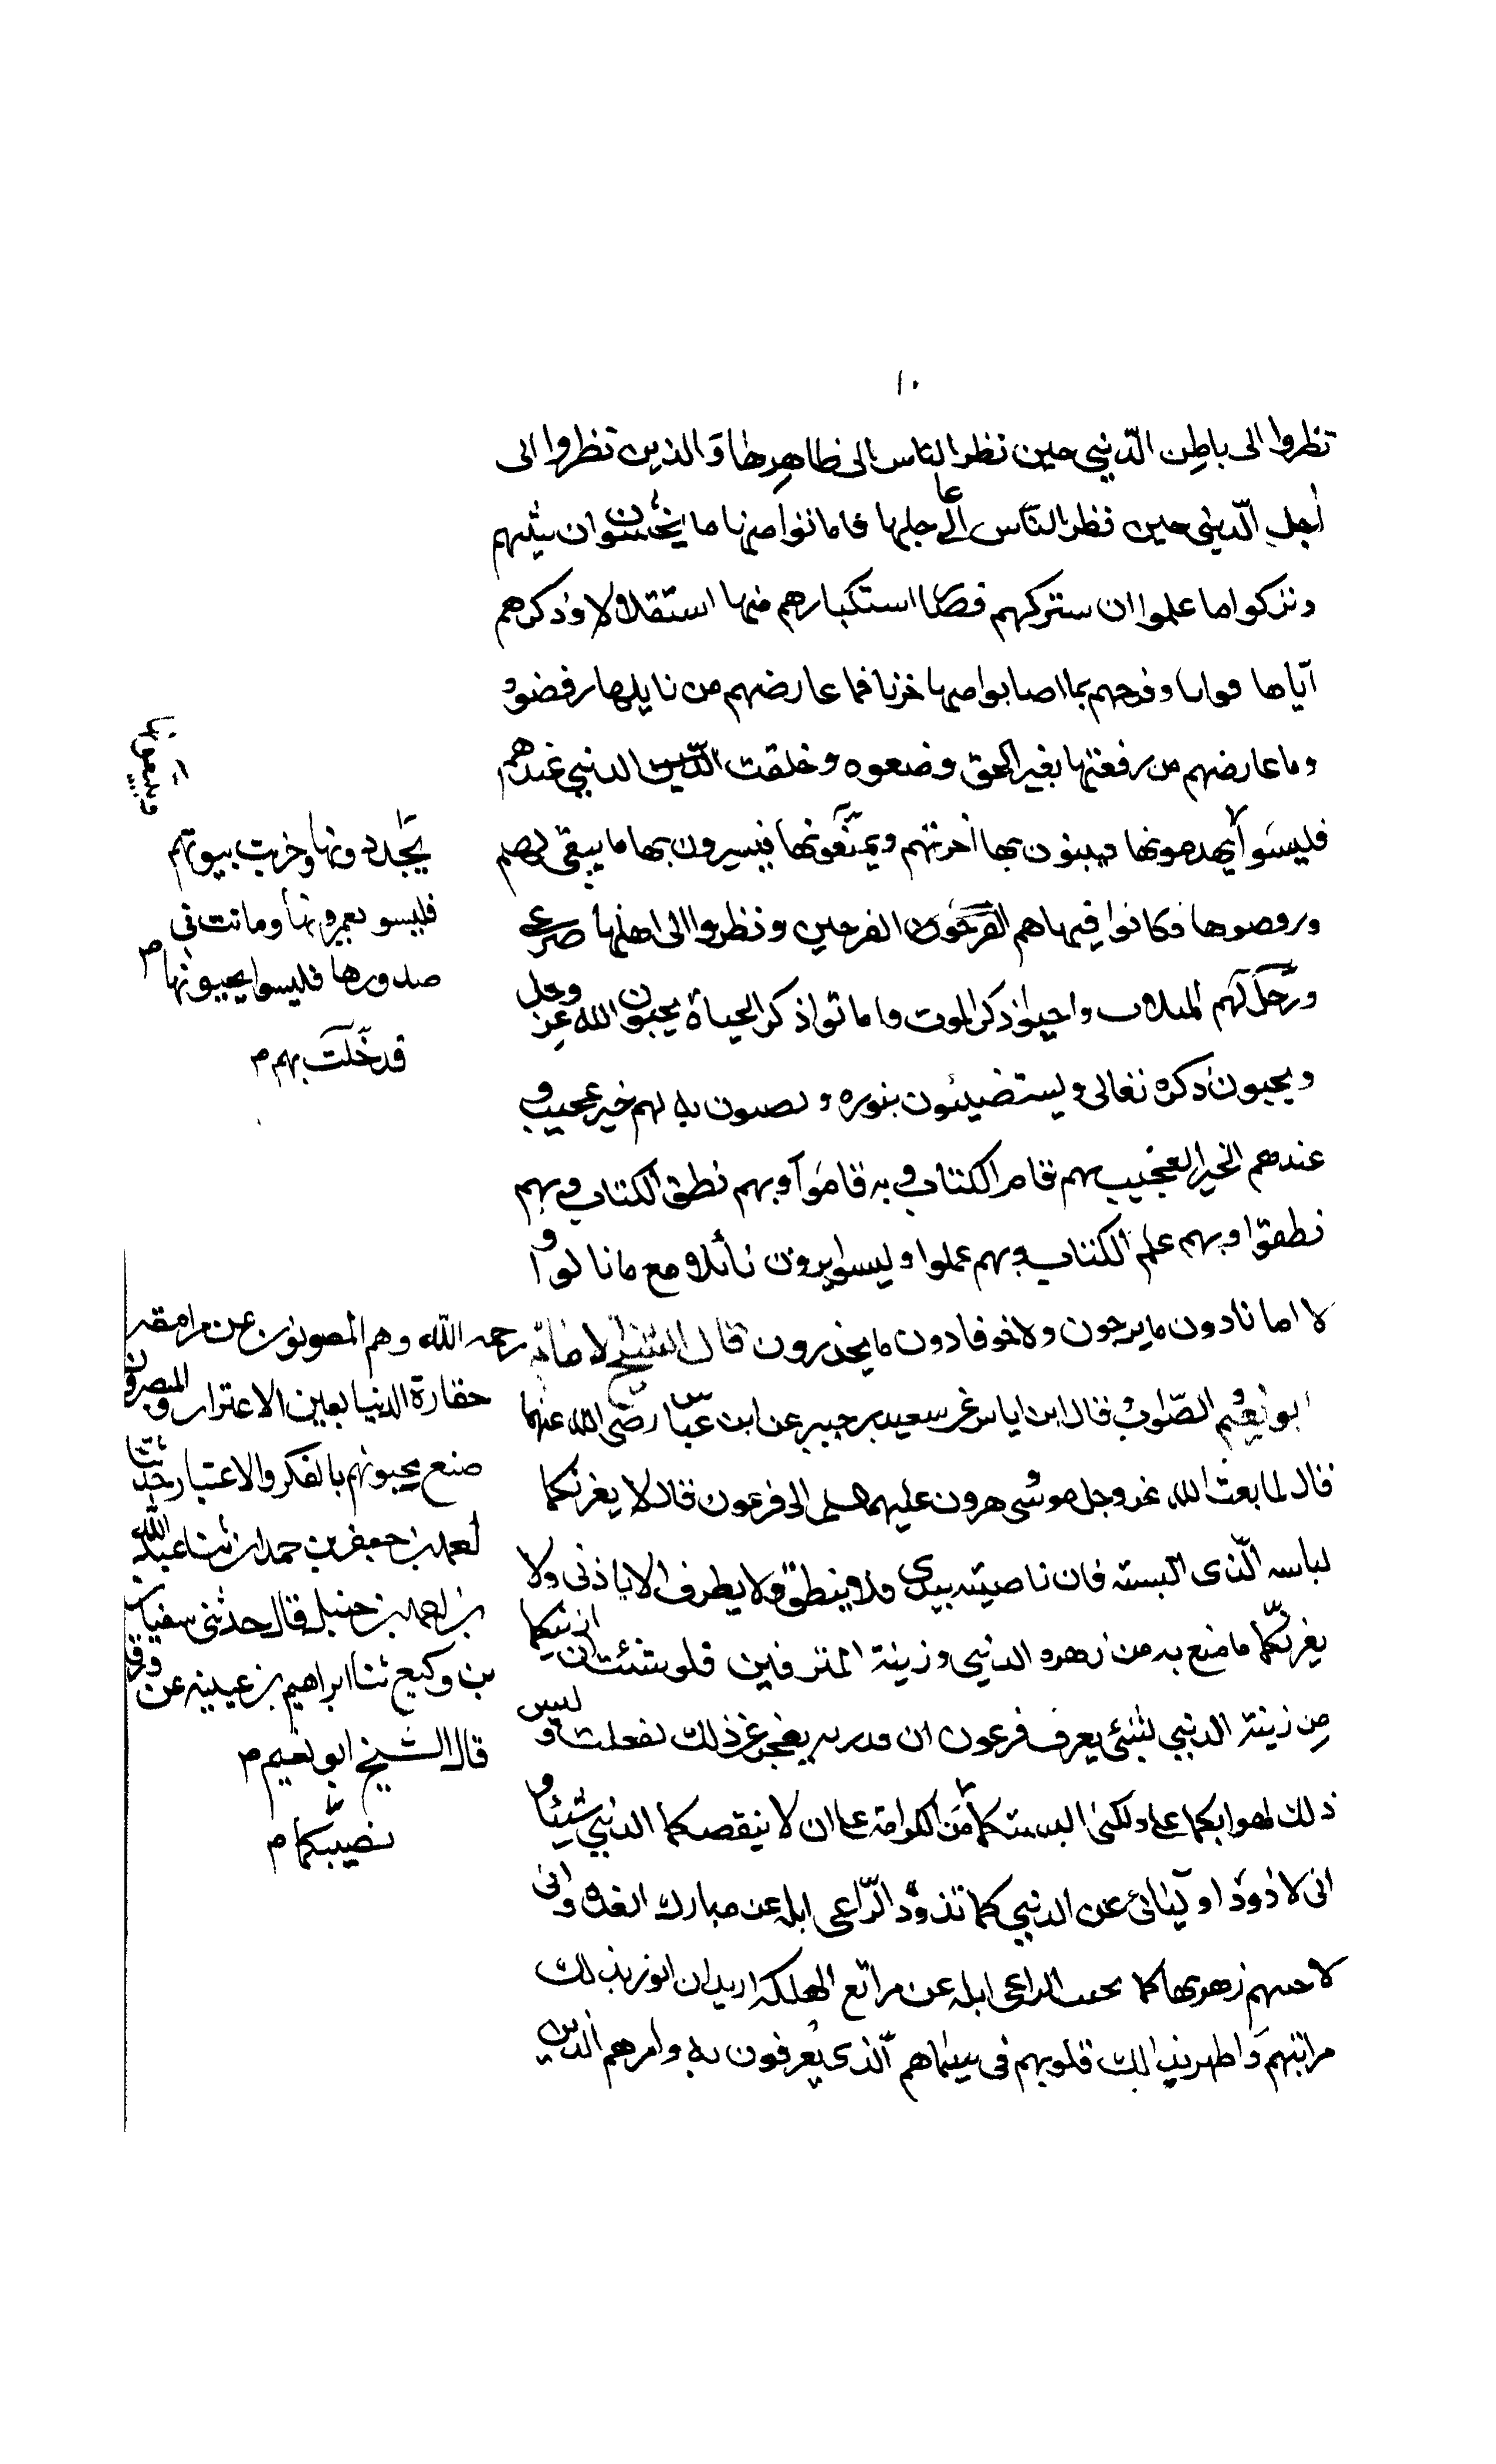 ١٠
نظروا الى باطن الدنيى حين نظر الناس الى ظاهرها والذين نظروا الى
أجل الدينى حين نظر الناس الى عاجلها فاماتوا منها ما يخشون ان يميتهم
وتركوا ما علموا ان ستتركهم فصار استكبارهم منها استقلالا وذكرهم
آياها فواتا وفرحهم بما اصابوا منها حزنا فما عارضهم من نايلها رفضوه
وما عارضهم من رفعتها بغير الحق وضعوه وخلقت الدنيى عندهم
فليسوا يهدمونها فيبنون بها آخرتهم ويبيعونها فيشترون بها ما يبقى لهم
ورفضوها فكانوا فيها هم الفرحون الفرحين ونظروا الى اهلها صرعى
المثلات واحيوا ذكر الموت واماتوا ذكر الحياة يحبون الله عز وجل
ويحبون ذكره تعالى ويستضيئون بنوره لهم خير عجيب و
عندهم الخير العجيب بهم قام الكتاب وبه قاموا وبهم نطق الكتاب وبهم
نطقوا وبهم علم الكتاب وبهم عملوا وليسوا يرون نائلا مع ما نالوا و
لا امانا دون ما يرجون ولا خوفا دون ما يحذرون قال الشيخ
ابو نعيم قال ابن اياس عن سعيد بن جبير عن ابن عباس رضى الله عنهما
قال لما بعث الله عز وجل موسى وهرون عليهما الى فرعون قال لا يغرنكما
لباسه الذى البسته فان ناصيته بيدى فلا ينطق ولا يطرف الا باذنى ولا
يغرنكما ما متع به من زهرة الدنيى وزينة المترفين فلو شئت ان ازينكما
من زينة الدنيى بشئ يعرف فرعون ان قدرته يعجز عن ذلك لفعلت وليس
ذلك لهوانكما على ولكنى البستكما من الكرامة على ان لا ينقصكما الدنيى شيئا و
انى لاذود اوليائى عن الدنيى كما تذود الراعى ابله عن مبارك وانى
لاجنبهم زهرتها كما يجنب الراعى ابله عن مراتع الهلكة اريد ان انور بذلك
مراتبهم واطهر بذلك قلوبهم فى سيماهم الذى يعرفون به وامرهم الذين
يجددونها وخربت بيوتهم
فليسو يعمرونها وماتت فى
صدورها فليسوا يحيونها م
قد خلت بهم م
رحمه الله وهم المصونون عن مرامقة
حقارة الدنيا بعين الاغترار و المبصرون
صنع محبوبهم بالفكر والاعتبار حدثنا
احمد بن جعفر بن حمدان ثنا عبد الله
بن احمد بن حنبل قال حدثنى سفيان
بن وكيع ثنا ابراهيم بن عيينه عن ورقا
قال الشيخ ابو نعيم م
نصيبكما م